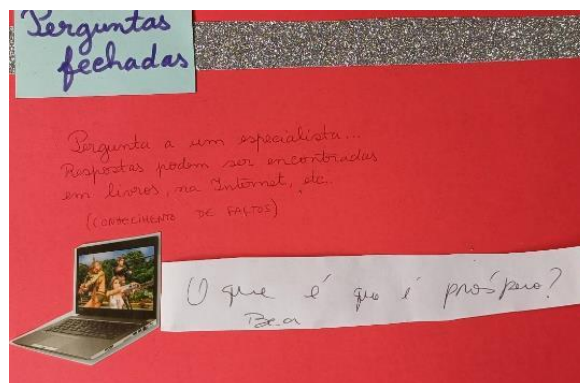 Perguntas
fechadas
Pergunta a um especialista...
Respostas podem ser encontradas
em livros, na Internet, etc.
(CONHECIMENTO DE FACTOS)
O que é que é próspero?